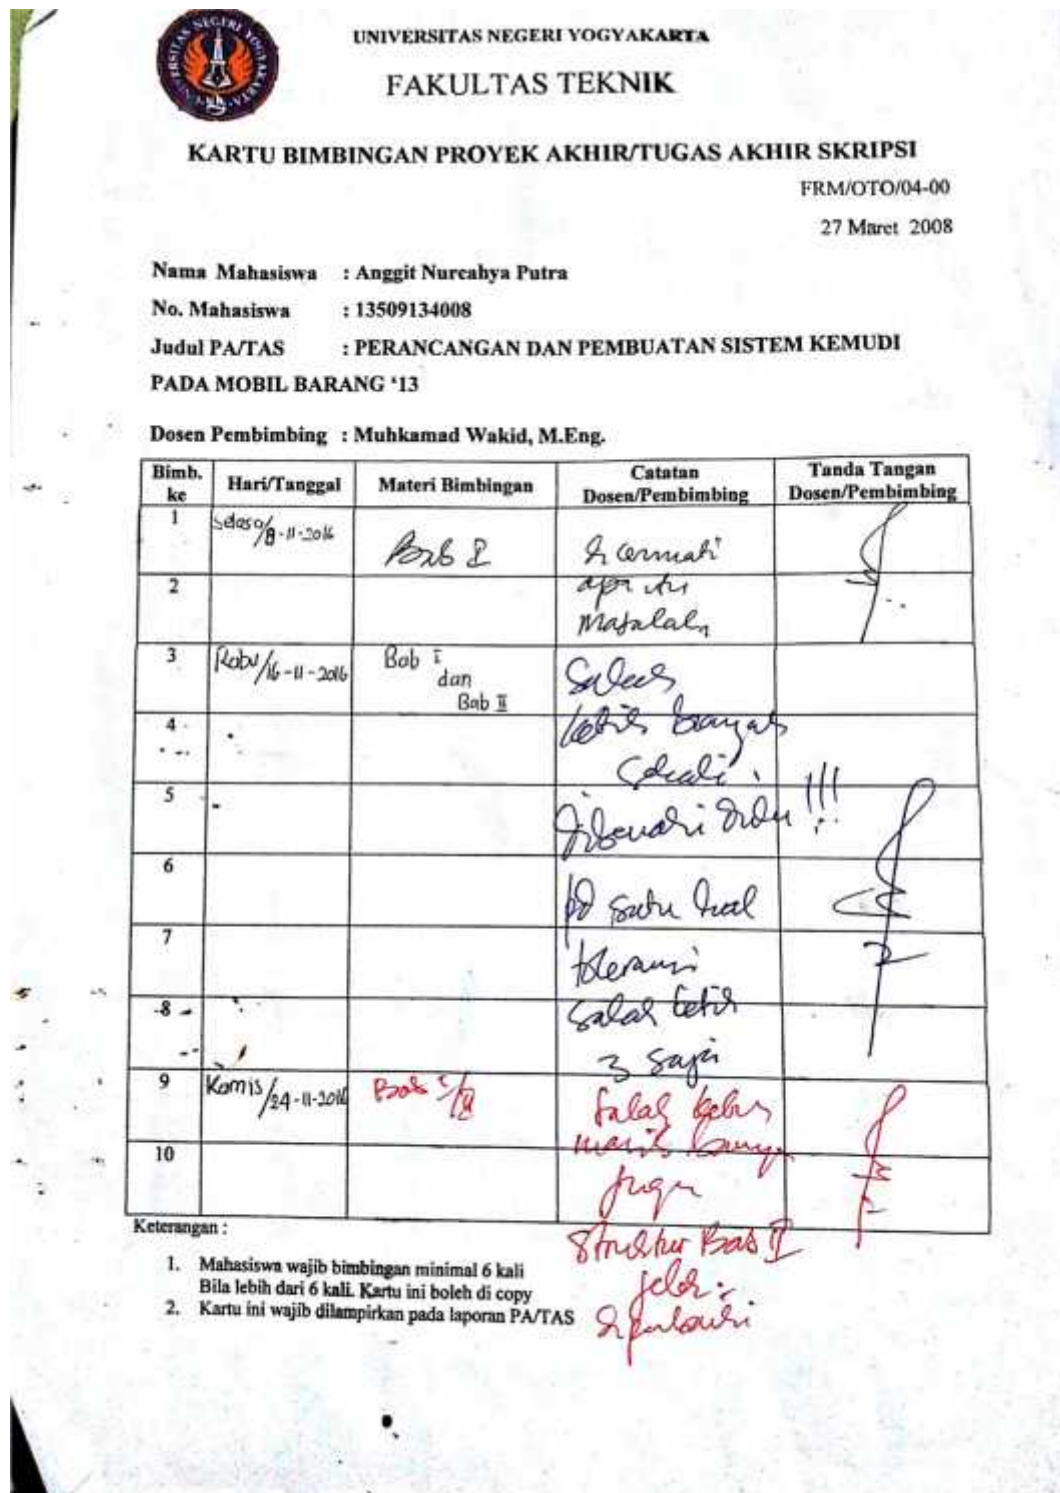 UNIVERSITAS NEGERI YOGYAKARTA
UNIVERSITAS NEGERI YOGYAKARTA
FAKULTAS TEKNIK
KARTU BIMBINGAN PROYEK AKHIR/TUGAS AKHIR SKRIPSI
FRM/OTO/04-00
27 Maret 2008
Nama Mahasiswa : Anggit Nurcahya Putra
No. Mahasiswa : 13509134008
Judul PA/TAS : PERANCANGAN DAN PEMBUATAN SISTEM KEMUDI
PADA MOBIL BARANG '13
Dosen Pembimbing : Muhkamad Wakid, M.Eng.
Bimb. ke Hari/Tanggal Materi Bimbingan Catatan Dosen/Pembimbing Tanda Tangan Dosen/Pembimbing
1 Selasa/8-11-2016 Bab I dicermati
2 apa itu
masalah
3 Rabu/16-11-2016 Bab I dan Bab II Salah
4 ketik banyak
sekali.
5 Dibenahi dulu !!!
6 pd satu hal
7 toleransi
8 salah ketik
3 saja
9 Kamis/24-11-2016 Bab I/II Salah ketik
10 masih banyak
juga
Struktur Bab II
jelek:
diperbaiki
Keterangan :
1. Mahasiswa wajib bimbingan minimal 6 kali
Bila lebih dari 6 kali. Kartu ini boleh di copy
2. Kartu ini wajib dilampirkan pada laporan PA/TAS